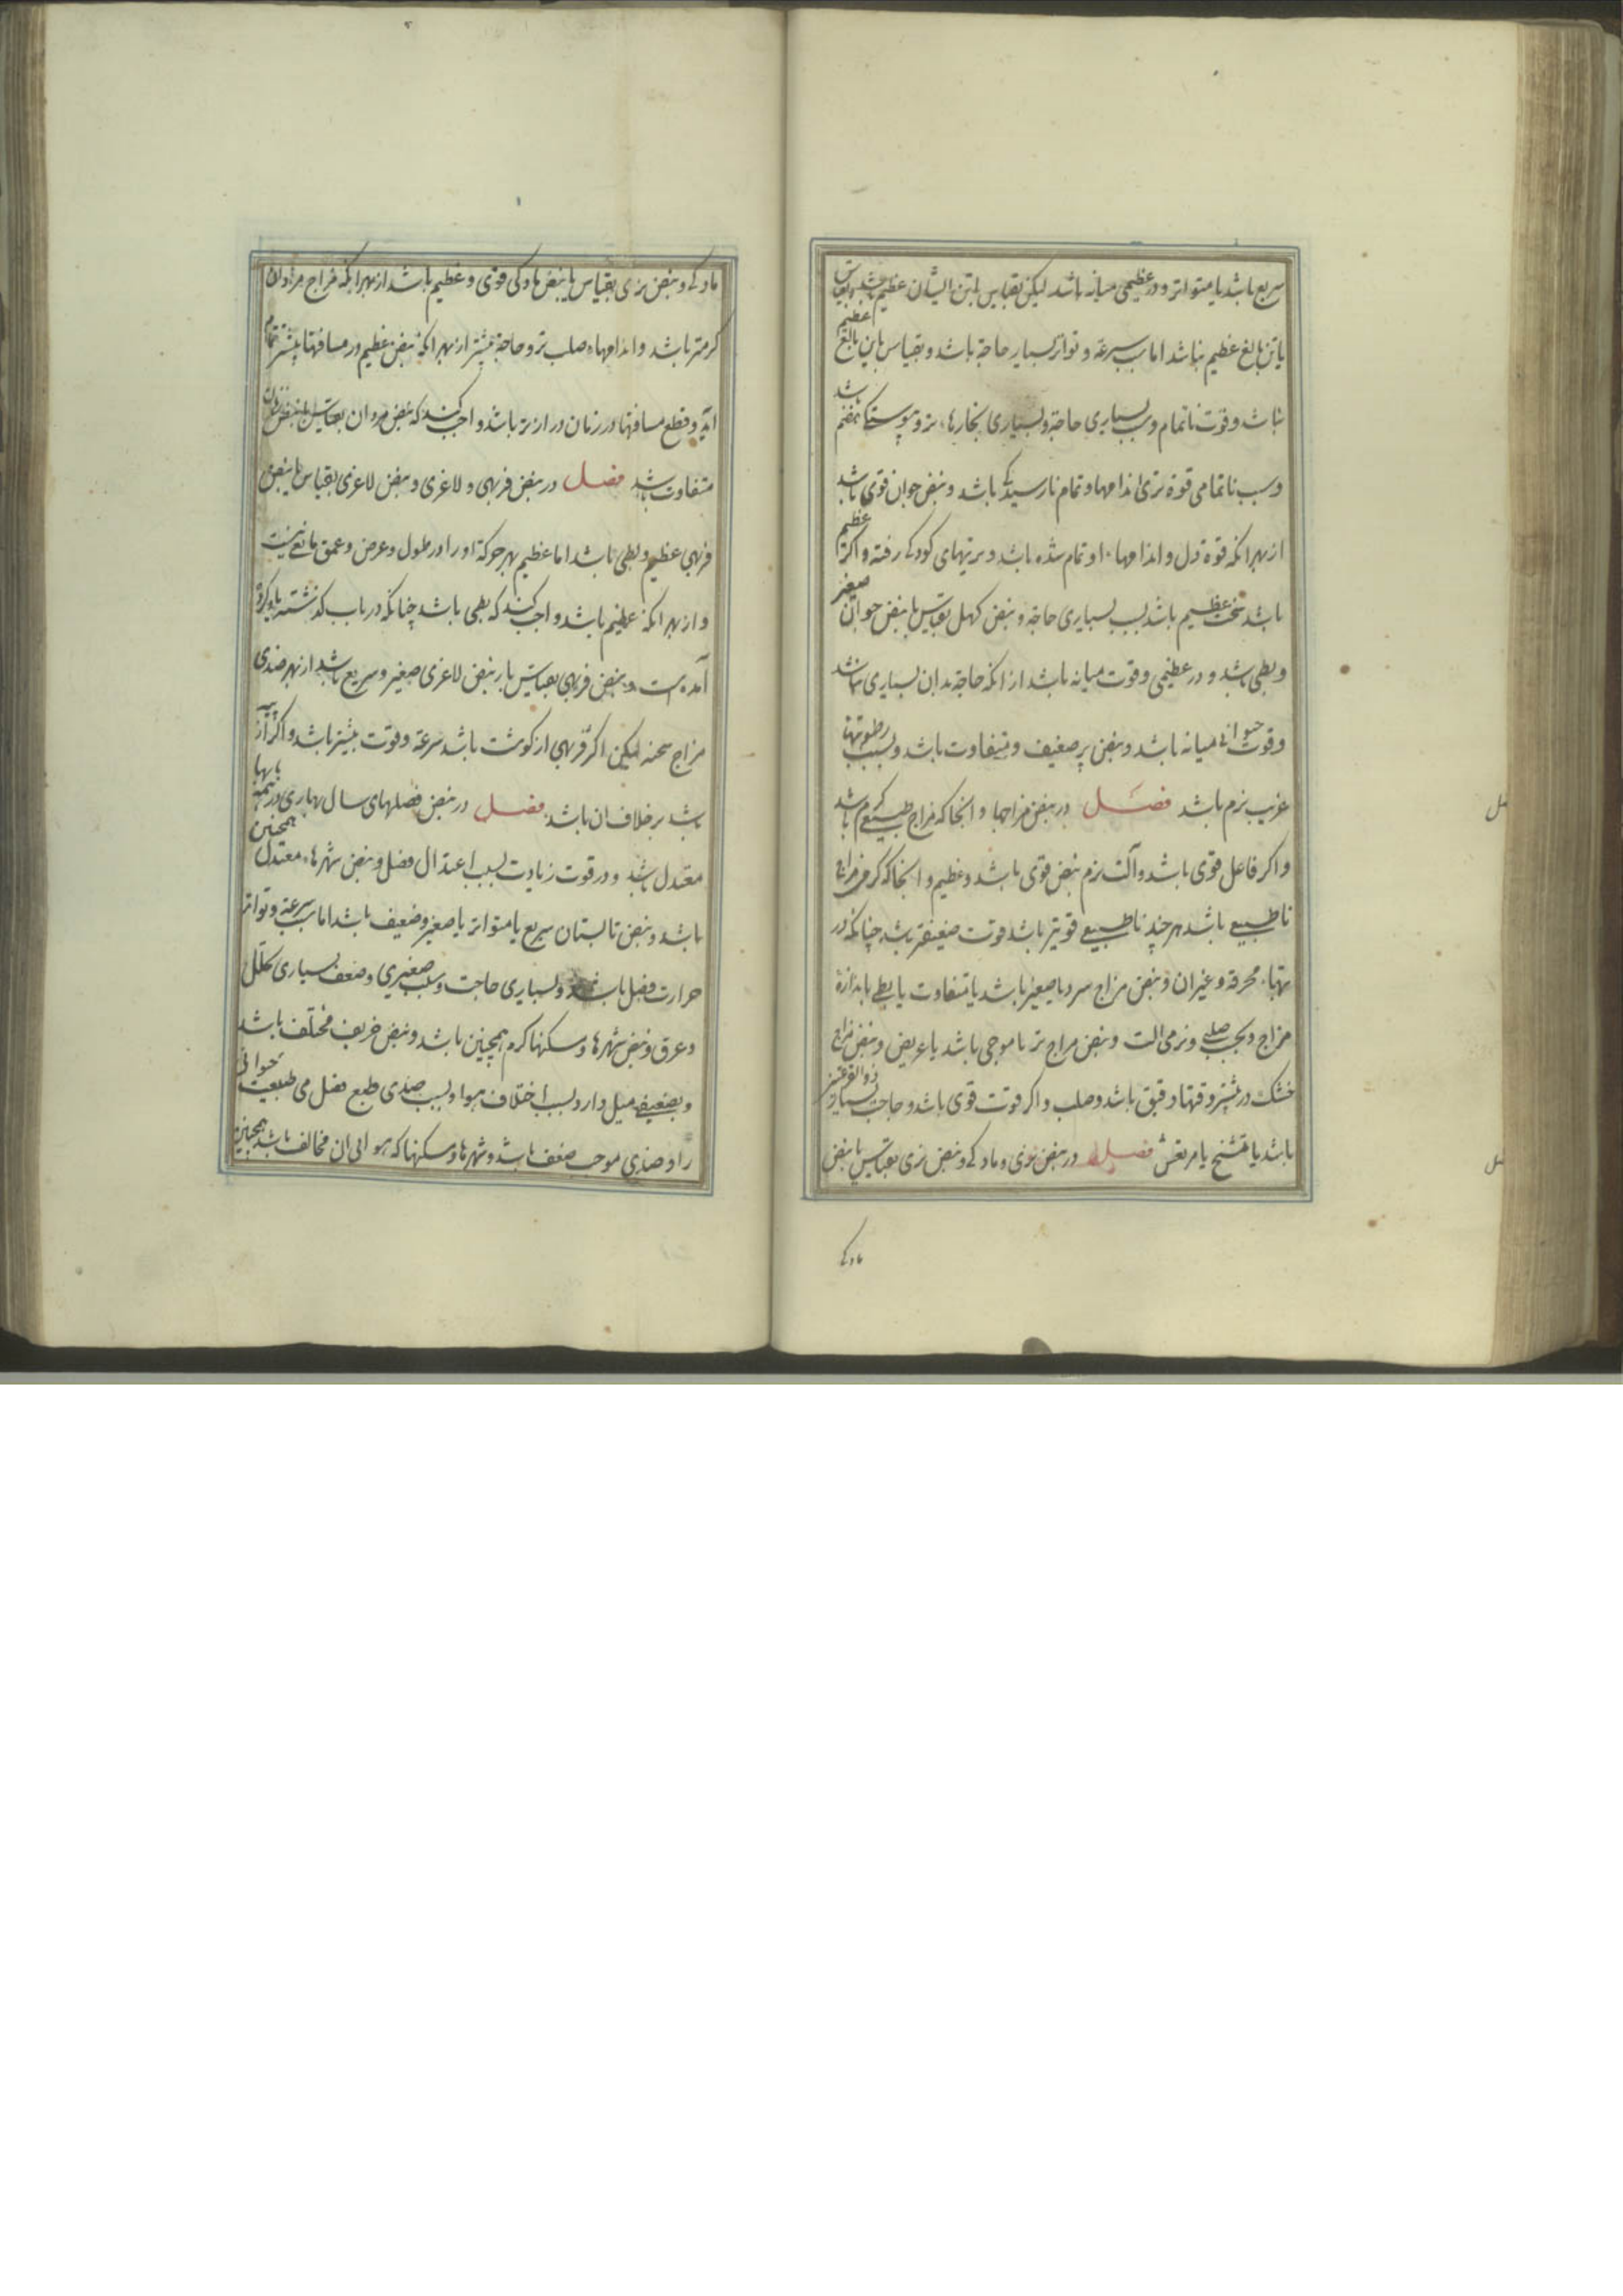 سریع باشد یا متواتر و در عظیمی میانه باشد لیکن بقیاس با تن ایشان عظیم باشد و بقیاس
با تن بالغ عظیم نباشد اما سبب سرعة و تواتر بسیار حاجة باشد و بقیاس با تن بالغ عظیم
نباشد و قوت ناتمام و سبب بسیاری حاجة و بسیاری بخارهاء تر و پیوستگی هضم باشد
و سبب ناتمامی قوة تری اندامها و تمام نارسیدگی باشد و نبض جوان قوی باشد
از بهر انکه قوة دل و اندامهاء او تمام شده باشد و تریهای کودکی رفته و اکر عظیم
باشد سخت عظیم باشد بسبب بسیاری حاجة و نبض کهل بقیاس با نبض جوانان صغیر
و بطی باشد و در عظیمی و قوت میانه باشد از انکه حاجة بدان بسیاری نباشد
و قوت حیوانی میانه باشد و نبض پیر ضعیف و متفاوت باشد و بسبب رطوبتهاء
غریب نرم باشد فصل در نبض مزاجها و انجا که مزاج طبیعی کرم باشد
و اکر فاعل قوی باشد و آلت نرم نبض قوی باشد و عظیم و انجا که کرمی مزاج
ناطبیعی باشد هر چند ناطبیعی قویتر باشد قوت ضعیفتر باشد چنانکه در
تبهاء محرقه و غیر ان و نبض مزاج سرد یا صغیر باشد یا متفاوت یا بطی باندازهٔ
مزاج و بحسب صلبی و نرمی الت و نبض مزاج تر یا موجی باشد یا عریض و نبض مزاج
خشک در بیشتر وقتها دقیق باشد و صلب و اکر قوت قوی باشد و حاجت بسیار ذو القرعتین
باشد یا متشنج یا مرتعش فصل در نبض نری و مادکی و نبض نری بقیاس با نبض
مادکی
مادکی و نبض نری بقیاس با نبض مادکی قوی و عظیم باشد از بهر انکه مزاج مردان
کرمتر باشد و اندامهاء صلب تر و حاجة بیشتر از بهر انکه نبض عظیم در مسافتها بیشتر تمام
آید و قطع مسافتها در زمان درازتر باشد واجب کند که نبض مردان بقیاس با نبض زنان
متفاوت باشد فصل در نبض فربهی و لاغری و نبض لاغری بقیاس با نبض
فربهی عظیم و بطی باشد اما عظیم بهر حرکة او را در طول و عرض و عمق مانعی نیست
و از بهر انکه عظیم باشد واجب کند که بطی باشد چنانکه در باب کذشته یاد کرده
آمده است و نبض فربهی بقیاس با نبض لاغری صغیر و سریع باشد از بهر ضدی
مزاج سحنه لیکن اکر فربهی از کوشت باشد سرعة و قوت بیشتر باشد و اکر از پیه
باشد بر خلاف ان باشد فصل در نبض فصلهای سال بهاری در همه بابها
معتدل باشد و در قوت زیادت بسبب اعتدال فصل و نبض شهرهاء معتدل همچنین
باشد و نبض تابستان سریع یا متواتر یا صغیر و ضعیف باشد اما سبب سرعة و تواتر
حرارت فصل باشد و بسیاری حاجت و سبب صغیری و ضعف بسیاری تحلل
و عرق و نبض شهرها و مسکنها کرم همچنین باشد و نبض خریف مختلف باشد
و بضعیفی میل دارد بسبب اختلاف هوا و بسبب ضدی طبع فصل می طبیعت حیوانی
را و ضدی موجب ضعف باشد و شهرها و مسکنها که هوای ان مخالف باشد همچنین